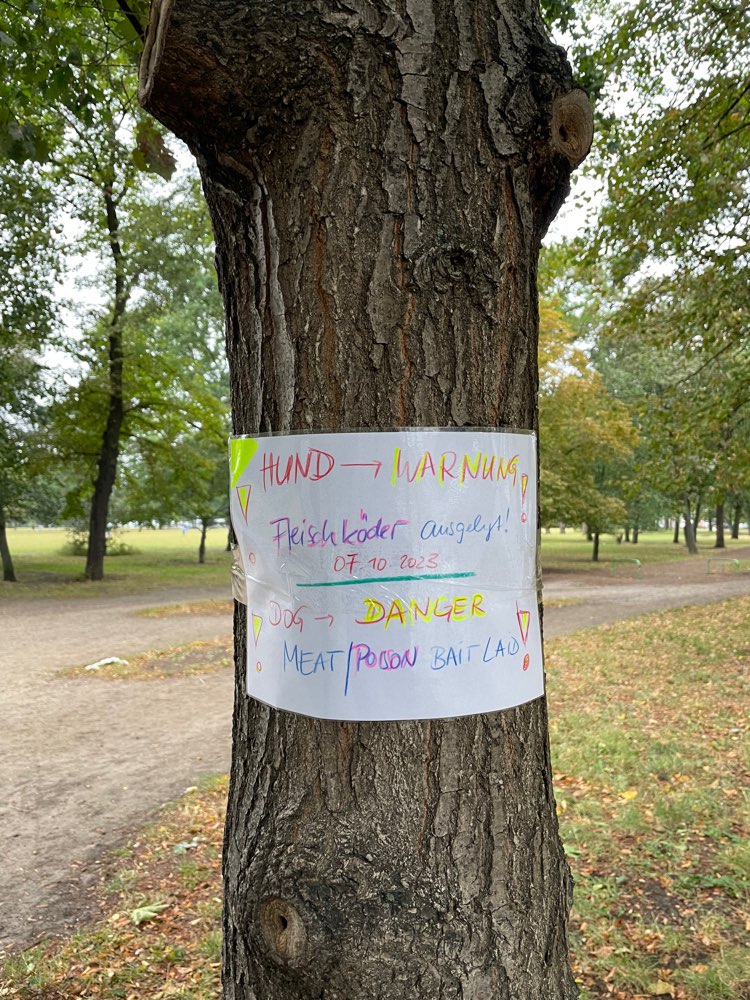 HUND → WARNUNG!
Fleischköder ausgelegt!
07.10.2023
DOG → DANGER
MEAT/POISON BAIT LAID!